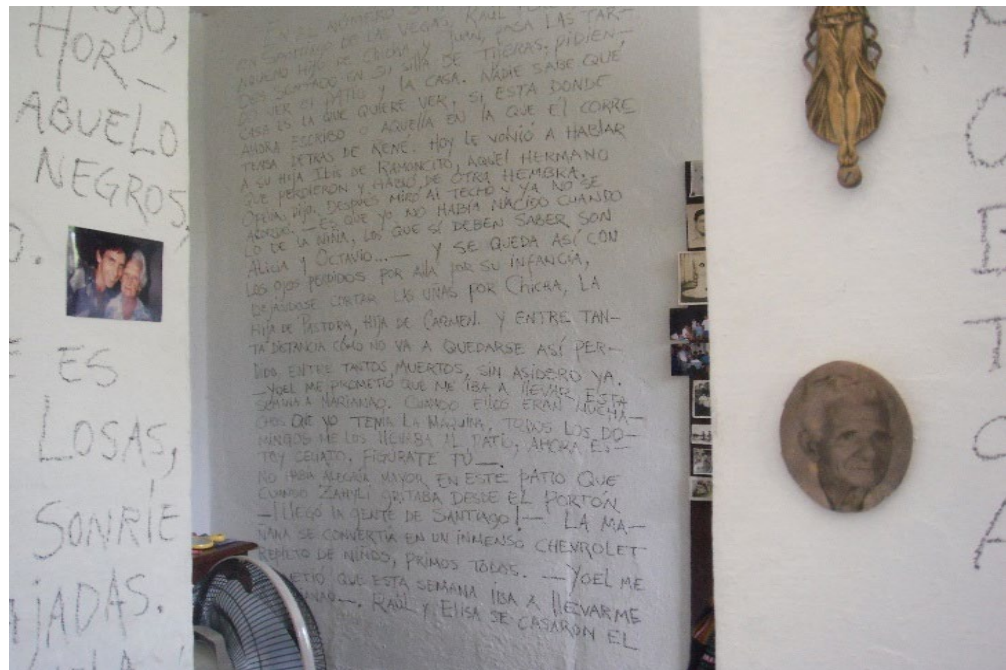 HOR-
ABUELO
NEGROS,
O.
ES
LOSAS,
SONRÍE
AJADAS.
EN EL NÚMERO
EN SANTIAGO DE LAS VEGAS, RAÚL
AQUEHO HIJO DE CHICHA Y JUAN, PASA LAS TAR-
DES SENTADO EN SU SILLA DE TIJERAS, PIDIEN-
DO VER EL PATIO Y LA CASA. NADIE SABE QUÉ
CASA ES LA QUE QUIERE VER, SI ESTA DONDE
AHORA ESCRIBO O AQUELLA EN LA QUE ÉL CORRE
DETRÁS DE RENÉ. HOY LE VOLVIÓ A HABLAR
A SU HIJA IBIS DE RAMONCITO, AQUEL HERMANO
QUE PERDIERON Y HABLÓ DE OTRA HEMBRA.
DIJO. DESPUÉS MIRÓ AL TECHO Y YA NO SE
ACORDÓ. —ES QUE YO NO HABÍA NACIDO CUANDO
LO DE LA NIÑA, LOS QUE SÍ DEBEN SABER SON
ALICIA Y OCTAVIO...— Y SE QUEDA ASÍ CON
LOS OJOS PERDIDOS POR ALLÁ POR SU INFANCIA,
DEJÁNDOSE CORTAR LAS UÑAS POR CHICHA, LA
HIJA DE PASTORA, HIJA DE CARMEN. Y ENTRE TAN-
TA DISTANCIA CÓMO NO VA A QUEDARSE ASÍ PER-
DIDO, ENTRE TANTOS MUERTOS, SIN ASIDERO YA.
—YOEL ME PROMETIÓ QUE ME IBA A LLEVAR ESTA
SEMANA A MARIANAO. CUANDO ELLOS ERAN MUCHA-
CHOS QUE YO TENÍA LA MÁQUINA, TODOS LOS DO-
MINGOS ME LOS LLEVABA AL PATIO, AHORA ES-
TOY CEGATO. FIGÚRATE TÚ—.
NO HABÍA ALEGRÍA MAYOR EN ESTE PATIO QUE
CUANDO ZANYLI GRITABA DESDE EL PORTÓN
—¡LLEGÓ LA GENTE DE SANTIAGO!— LA MA-
ÑANA SE CONVERTÍA EN UN INMENSO CHEVROLET
REPLETO DE NIÑOS, PRIMOS TODOS. —YOEL ME
METIÓ QUE ESTA SEMANA IBA A LLEVARME
RAÚL Y ELISA SE CASARON EL